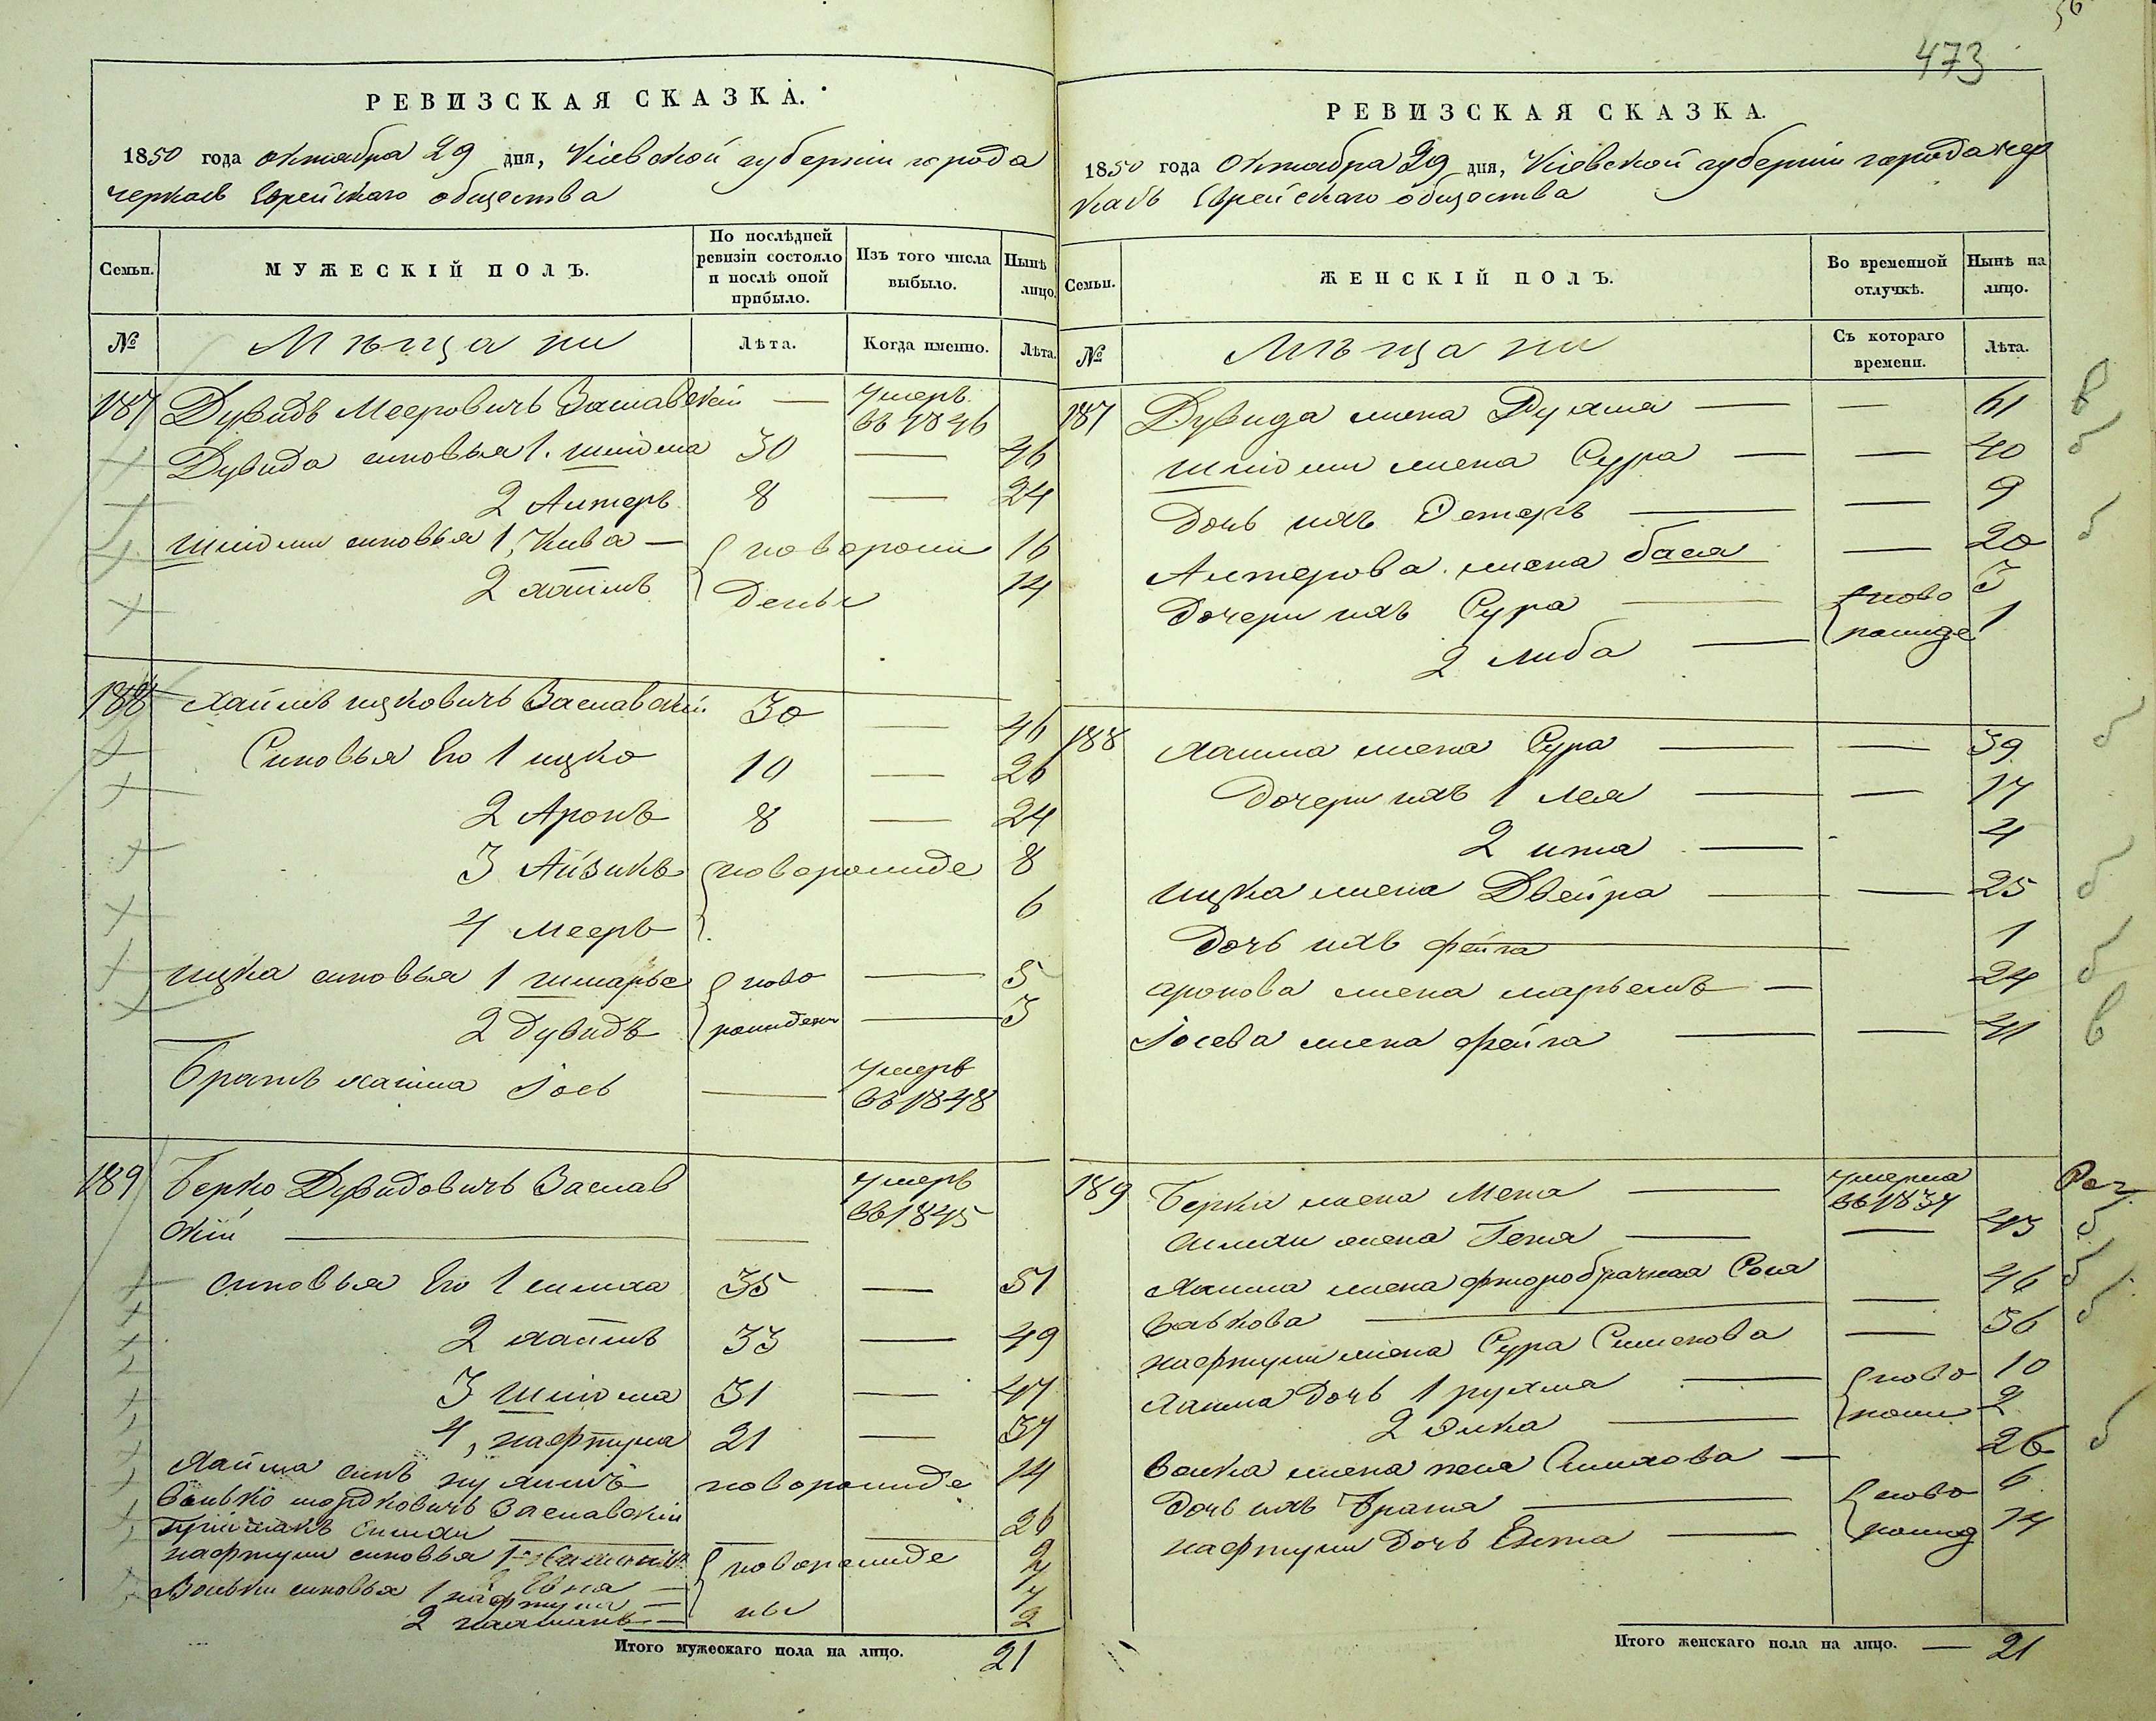 56
473
РЕВИЗСКАЯ СКАЗКА.
1850 года октября 29 дня, Кіевской губерніи города
черкасъ Еврейскаго общества
Семьи. МУЖЕСКІЙ ПОЛЪ. По послѣдней ревизіи состояло и послѣ оной прибыло. Изъ того числа выбыло. Нынѣ на лицо.
№ Мѣщани Лѣта. Когда именно. Лѣта.
187 Дувидъ Мееровичъ Заславскій — умеръ въ 1846
Дувида сыновья 1. шлiома 30 — 46
2 Алтеръ 8 — 24
шлiоми сыновья 1, Кива — новорожденые 16
2 хаимъ 14
188 хаимъ ицковичъ Заславскій. 30 — 46
Сыновья Его 1 ицко 10 — 26
2 Аронъ 8 — 24
3 Айзикъ новорожде 8
4 мееръ 6
ицка сыновья 1 шмарье ново — 5
2 дувидъ рожден — 3
Братъ хаима Іосъ — умеръ въ 1848
189 Берко Дувидовичъ Заслав умеръ въ 1845
скій — —
сыновья Его 1 симха 35 — 51
2 хаимъ 33 — 49
3 шлiома 31 — 47
4, нафтула 21 — 37
хаима сынъ новорожде 14
Волько мордковичъ Заславскій
26
нафтули сыновья 1 новорожде
Вольки сыновья 1 нафтула ны 4
2 — 2
Итого мужескаго пола на лицо. 21
РЕВИЗСКАЯ СКАЗКА.
1850 года Октября 29 дня, Кіевской губерніи города чер
касъ Еврейскаго общества
Семьи. ЖЕНСКІЙ ПОЛЪ. Во временной отлучкѣ. Нынѣ на лицо.
№ Мѣщани Съ котораго времени. Лѣта.
187 Дувида жена Рухля — — 61 в
шлiоми жена Сура — — 40 б
дочь ихъ Эстеръ — — 9
Алтерова жена бася — 20 б
дочери ихъ Сура — ново 3
2 либа — рожде 1
188 хаима жена Сура — — 39 б
дочери ихъ 1 лея — — 17
2 ита — 4
ицка жена Двейра — — 25 б
дочь ихъ фейга — 1
аронова жена марьемъ — 24 б
Іосева жена фейга — — 41 в
189 Берки жена Мета — умерла въ 1837
симхи жена Гена — — 43 б
хаима жена фторобрачная Сося 46 б
Вавкова — —
нафтули жена Сура Симонова — 36 б
хаима дочь 1 рухля — ново 10
2 Элка — рожд 2
Волка жена песя Симхова — 26 б
дочь ихъ Браша — ново 6
нафтули дочь Ента — рожд 14
Итого женскаго пола на лицо. — 21